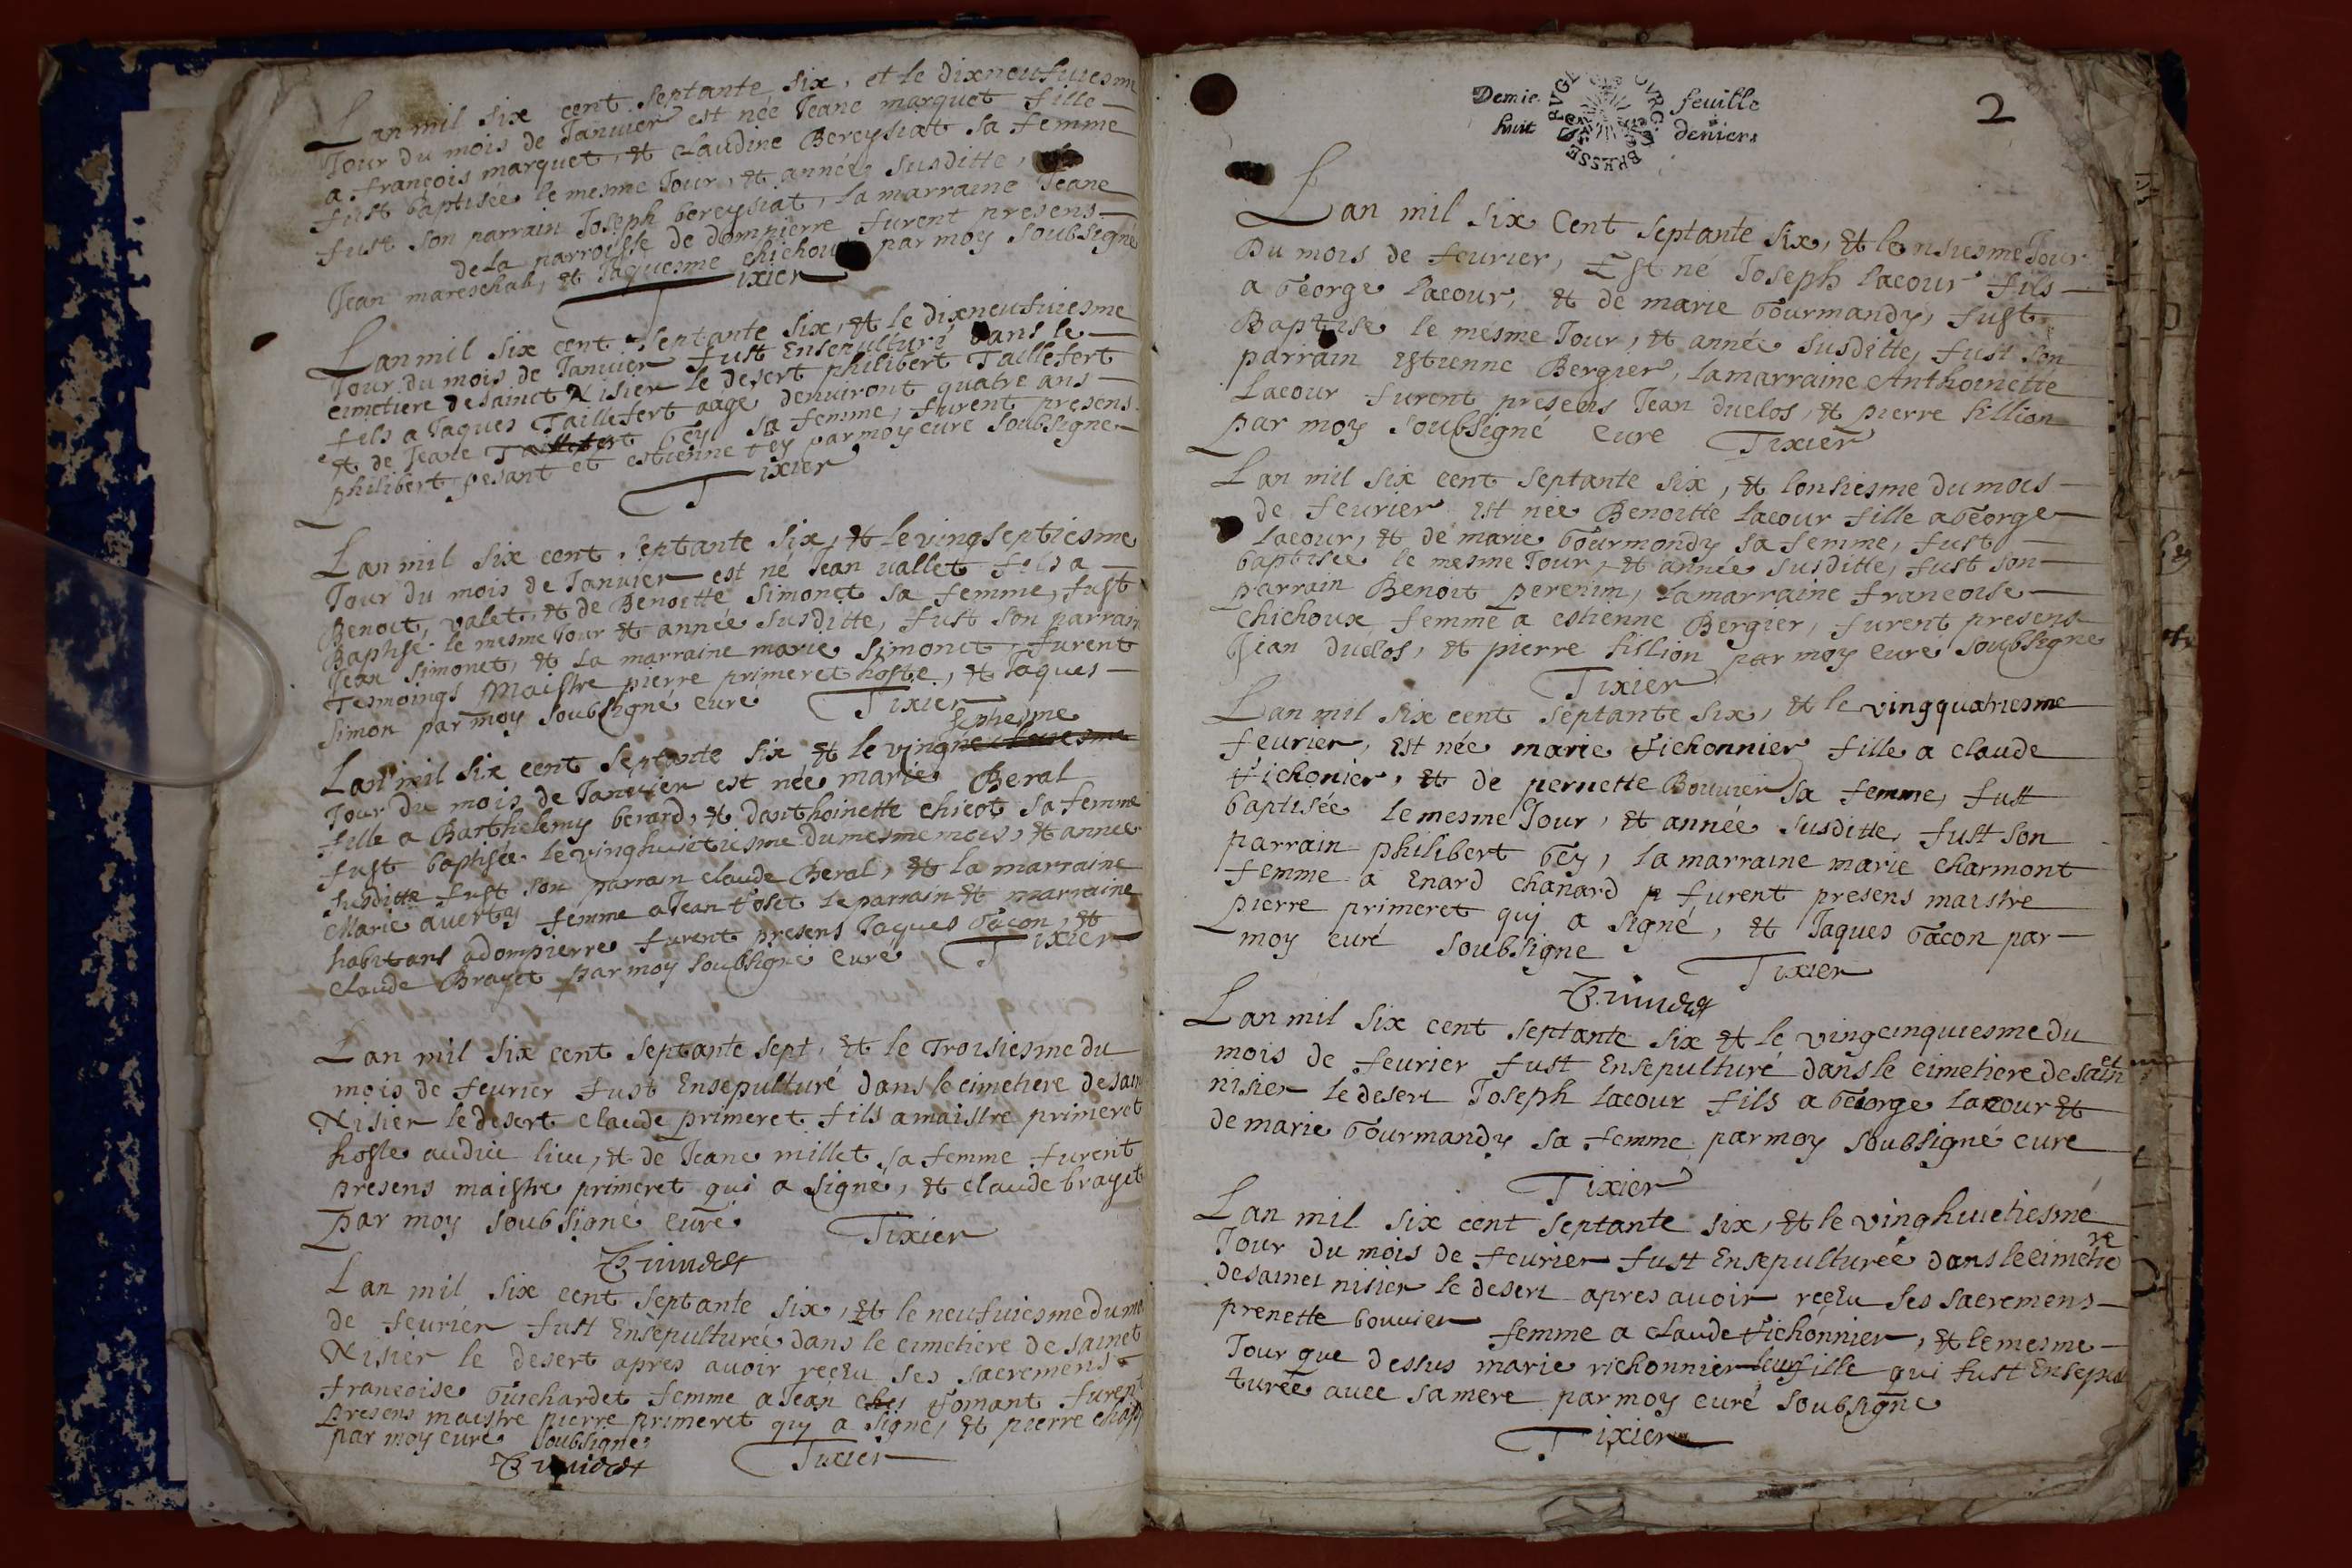 Lan mil six cent septante six, et le dixneufuiesme
Jour du mois de Januier est née Jeane marquet fille
a françois marquet, et claudine Bereysiat sa femme
fust baptisée le mesme Jour, et année susditte,
fust son parrain Joseph bereysiat, la marraine Jeane
de la parroisse de dompierre furent presens
Jean mareschal, et Jaquesme chichou par moy soubsigné
Tixier
Lan mil six cent septante six, et le dixneufuiesme
Jour du mois de Januier fust Ensepulturé dans le
cimetiere de sainct Nisier le desert philibert Taillefert
fils a Jaques Taillefert aage denuiront quatre ans
et de Jeane Taillefert bey sa femme, furent presens
philibert pesant et estienne bey par moy cure soubsigne
Tixier
Lan mil six cent septante six, et le vingseptiesme
Jour du mois de Januier est né Jean vallet fils a
Benoit, valet, et de Benoitte simonet sa femme, fust
Baptisé le mesme Jour et année susditte, fust son parrain
Jean simonet, et la marraine marie simonet, furent
Tesmoings Maistre pierre primeret hoste, et Jaques
simon par moy soubsigné curé Tixier
septiesme
Lan mil six cent septante six et le vingneufuiesme
Jour du mois de Januier est née marie Beral
fille a Barthelemy berard, et danthoinette chicot sa femme
fust baptisée le vinghuictiesme du mesme mois, et année
susditte fust son parrain claude Beral, et la marraine
Marie auerty femme a Jean foset le parrain et marraine
habitans a dompierre furent presens Jaques Gacon, et
claude Brayet par moy soubsigné curé Tixier
Lan mil six cent septante sept, et le Troisiesme du
mois de feurier fust Ensepulturé dans le cimetiere de sain
Nisier le desert claude primeret fils a maistre primeret
hoste audict lieu, et de Jeane millet sa femme furent
presens maistre primeret qui a signé, et claude brayet
par moy soubsigné curé Tixier
Primeret
Lan mil six cent septante six, et le neufuiesme du mo
de feurier fust Ensepulturée dans le cimetiere de sainct
Nisier le desert apres auoir reçeu ses sacremens
francoise Guichardet femme a Jean ches fomant furent
presens maistre pierre primeret quy a signé, et pierre chap
par moy curé soubsigné
Primeret Tixier
Demie feuille
huit deniers
BOVRG BRESSE
2
Lan mil six Cent septante six, et lonsiesme Jour
Du mois de feurier, Est né Joseph lacour fils
a George lacour, et de marie Gourmandy, fust
Baptise le mesme Jour, et année susditte, fust son
parrain Estienne Bergier, la marraine Anthoinette
Lacour furent presens Jean duclos, et pierre fillion
par moy soubsigné cure Tixier
Lan mil six cent septante six, et lonsiesme du mois
de feurier est née Benoitte lacour fille a George
lacour, et de marie Gourmondy sa femme, fust
baptisée le mesme Jour, et année susditte, fust son
parrain Benoit perenin, la marraine francoise
chichoux femme a estienne Bergier, furent presens
Jean duclos, et pierre fillion par moy curé soubsigne
Tixier
Lan mil six cent septante six, et le vingquatriesme
feurier, est née marie fichonnier fille a claude
fichonier, et de pernette Bouuier sa femme, fust
baptisée le mesme Jour, et année susditte, fust son
parrain philibert bey, la marraine marie charmont
femme a Enard chanard p furent presens maistre
pierre primeret quj a signé, et Jaques Gacon par
moy curé soubsigne Tixier
Primeret
Lan mil six cent septante six et le vingcinquiesme du
mois de feurier fust Ensepulturé dans le cimetiere de sainct
nisier le desert Joseph lacour fils a George lacour et
de marie Gourmandy sa femme par moy soubsigné cure
Tixier
Lan mil six cent septante six, et le vinghuictiesme
Jour du mois de feurier fust Ensepulturée dans le cimetiere
de sainct nisier le desert apres auoir reçeu ses sacremens
prenette bouuier femme a claude fichonnier, et le mesme
Jour que dessus marie richonnier leur fille qui fust Ensepul
turée auec sa mere par moy curé soubsigne
Tixier